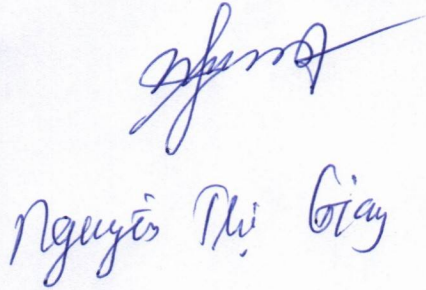 Nguyễn Thị Giang